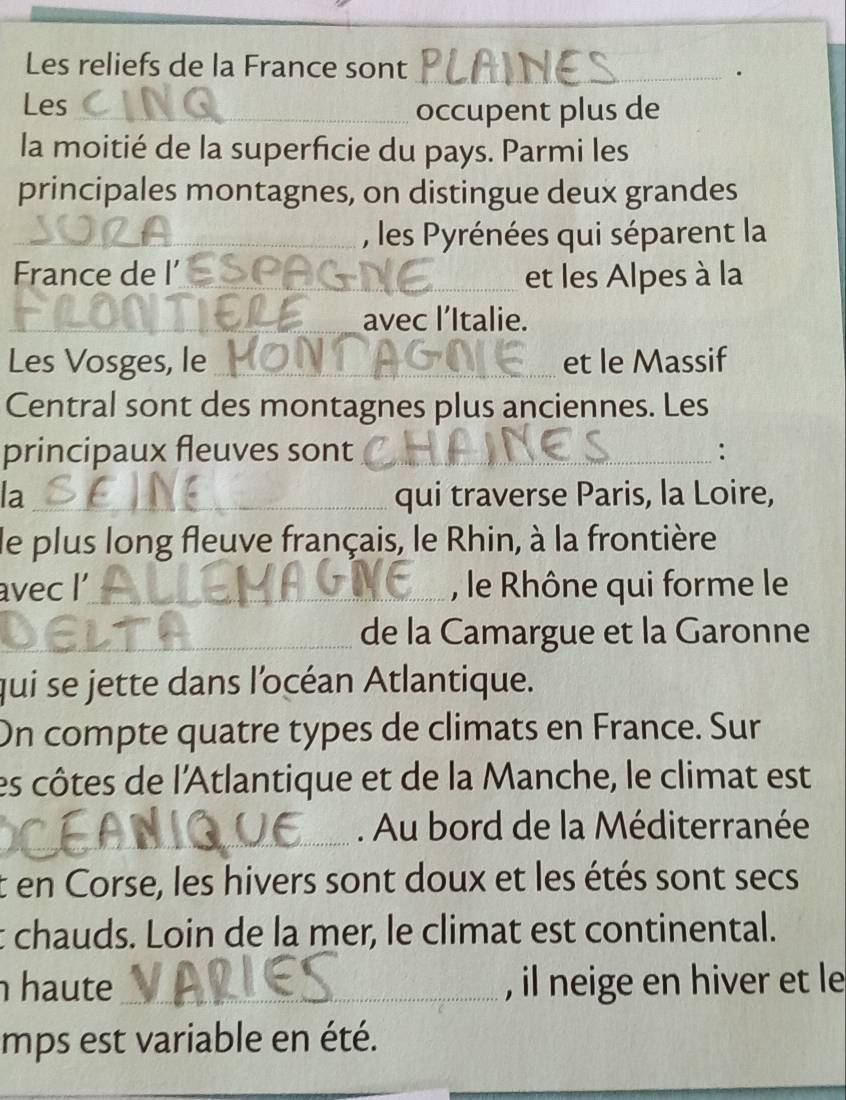 Les reliefs de la France sont PLAINES .
Les CINQ occupent plus de
la moitié de la superficie du pays. Parmi les
principales montagnes, on distingue deux grandes
JURA , les Pyrénées qui séparent la
France de l' ESPAGNE et les Alpes à la
FRONTIERE avec l'Italie.
Les Vosges, le MONTAGNE et le Massif
Central sont des montagnes plus anciennes. Les
principaux fleuves sont CHAINES :
la SEINE qui traverse Paris, la Loire,
le plus long fleuve français, le Rhin, à la frontière
avec l' ALLEMAGNE , le Rhône qui forme le
DELTA de la Camargue et la Garonne
qui se jette dans l'océan Atlantique.
On compte quatre types de climats en France. Sur
es côtes de l'Atlantique et de la Manche, le climat est
OCEANIQUE . Au bord de la Méditerranée
t en Corse, les hivers sont doux et les étés sont secs
t chauds. Loin de la mer, le climat est continental.
n haute VARIES , il neige en hiver et le
mps est variable en été.